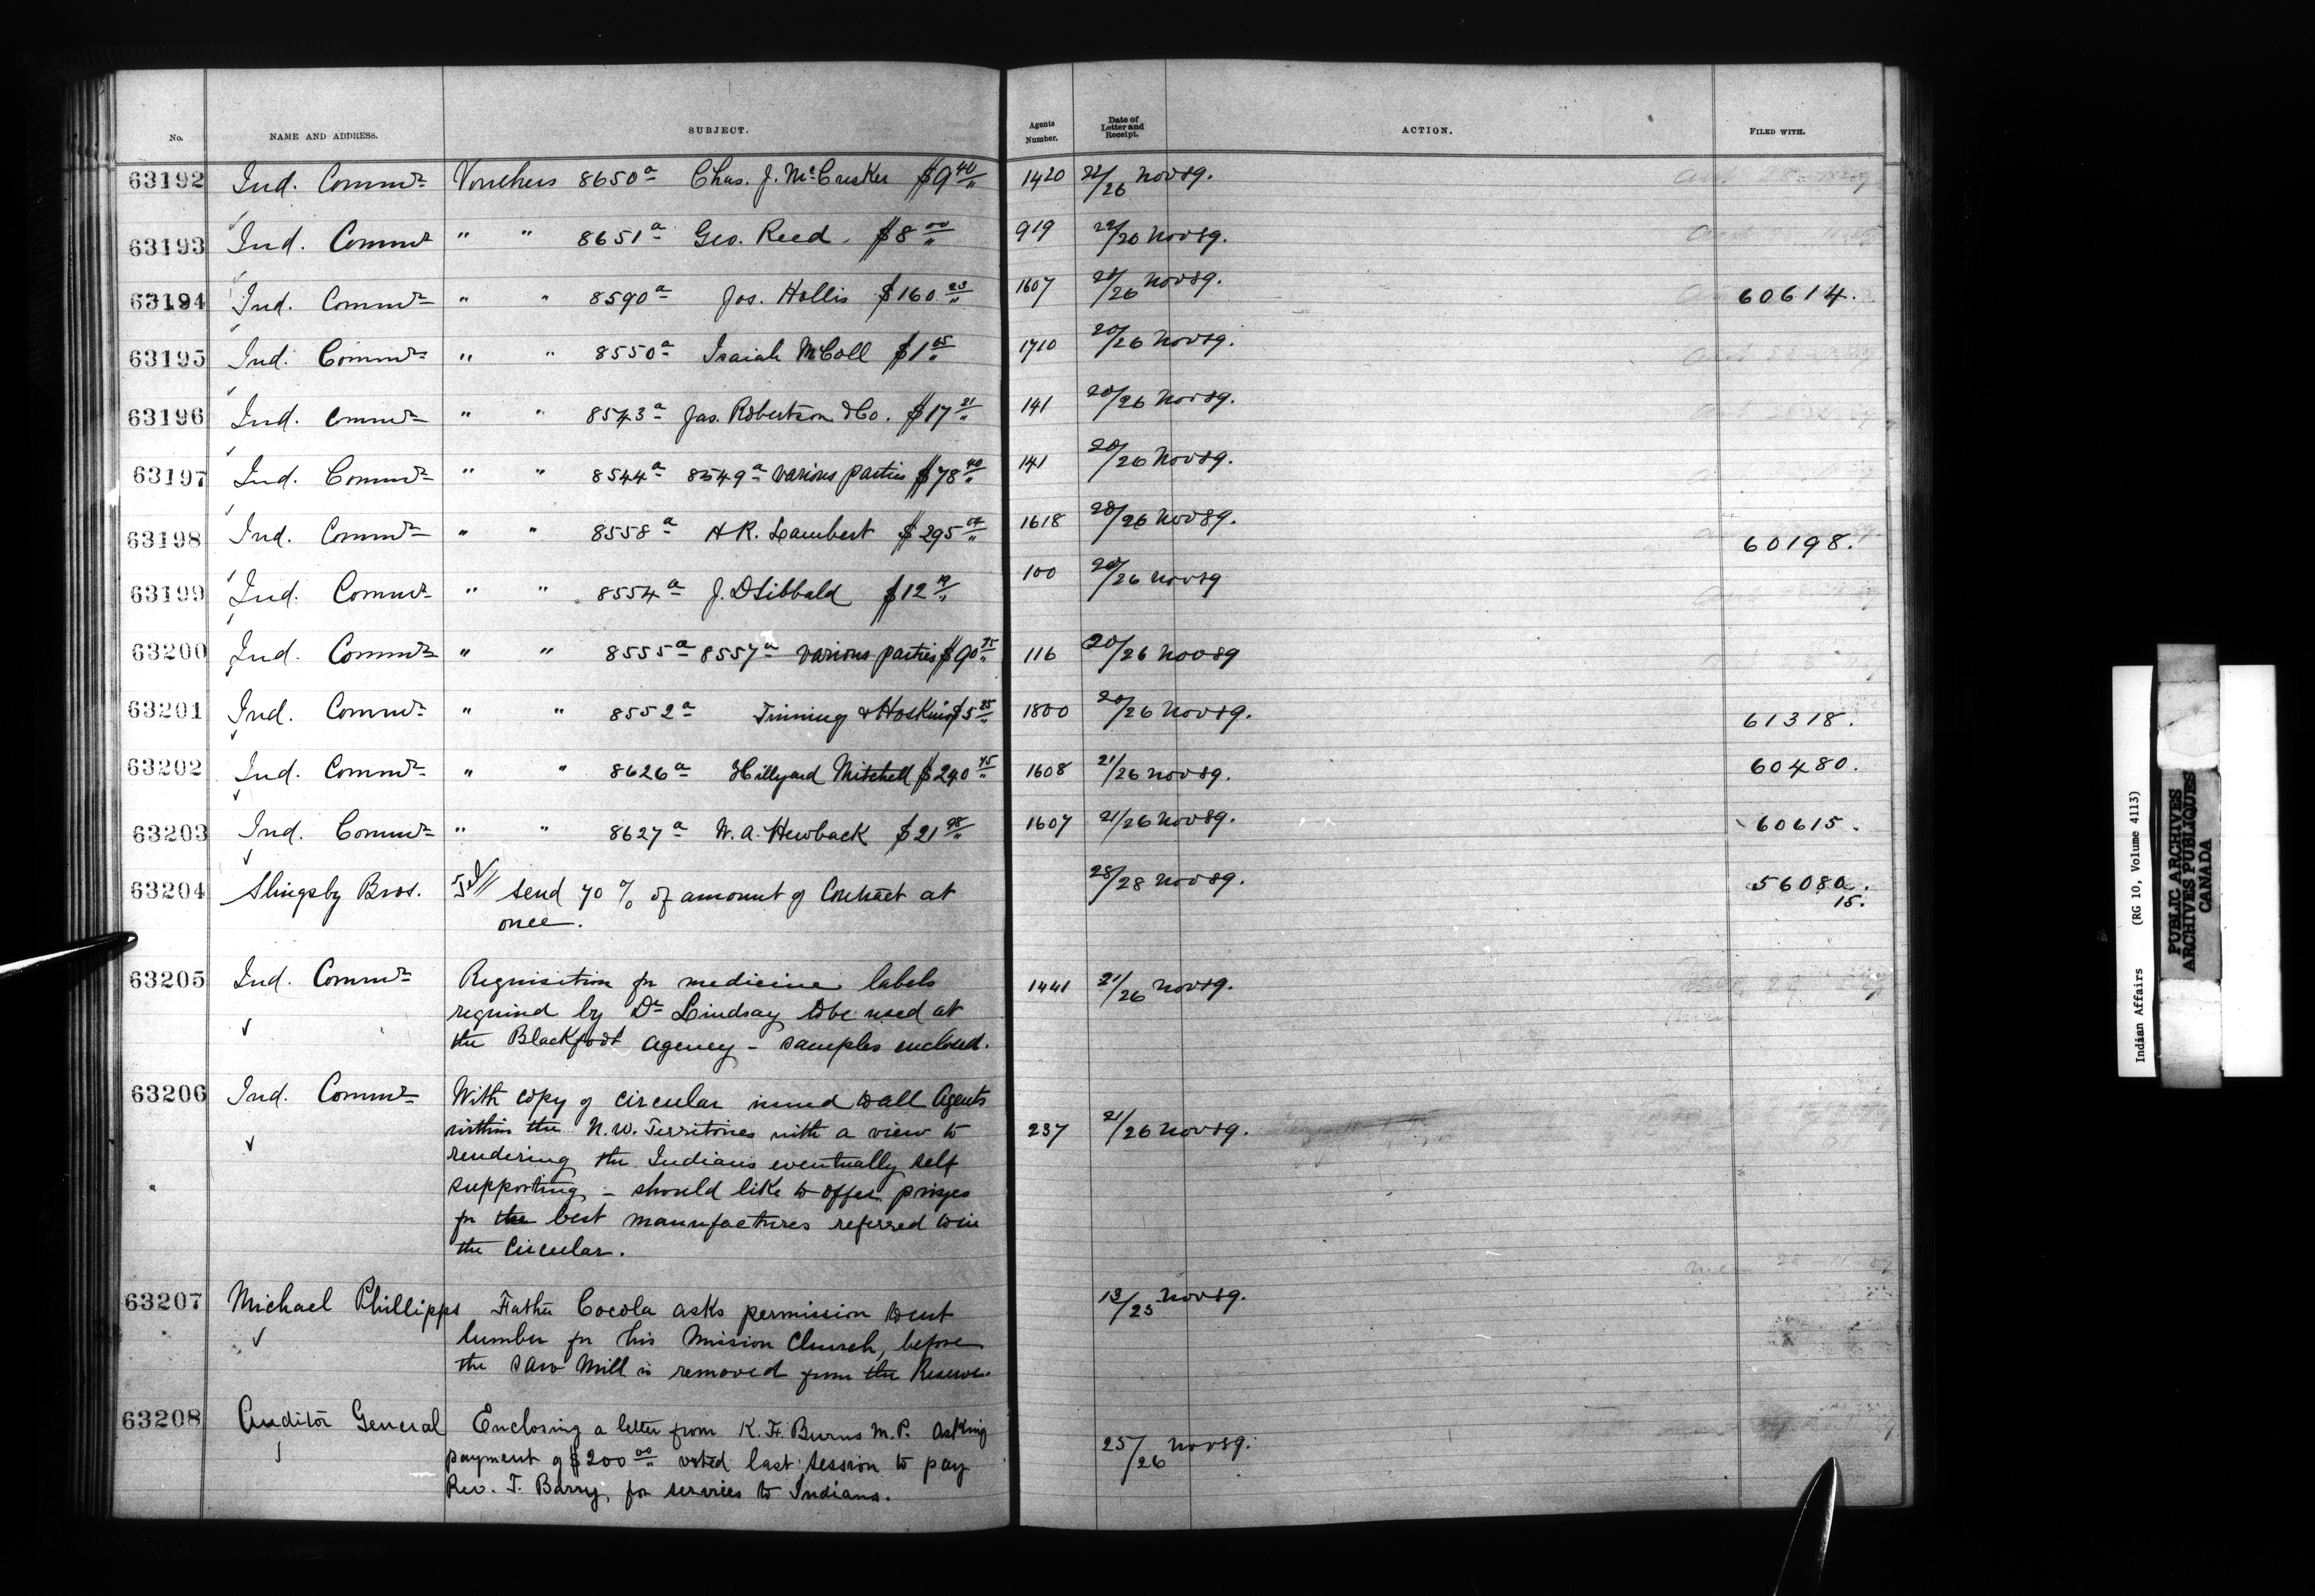 No. NAME AND ADDRESS. SUBJECT. Agents Number. Date of Letter and Receipt. ACTION. FILED WITH.
63192 Ind. Commr Vouchers 8650a Chas. J. McCusker $9.40 1420 22/26 Nov 89.
63193 Ind. Commr " " 8651a Geo. Reed. $8.00 919 22/26 Nov 89.
63194 Ind. Commr " " 8590a Jos. Hollis $160.23 1607 20/26 Nov 89. 60614.
63195 Ind. Commr " " 8550a Isaiah McColl $1.05 1710 20/26 Nov 89.
63196 Ind. Commr " " 8543a Jas. Robertson & Co. $17.21 141 20/26 Nov 89.
63197 Ind. Commr " " 8544a 8549a various parties $78.40 141 20/26 Nov 89.
63198 Ind. Commr " " 8558a H R. Lambert $295.04 1618 20/26 Nov 89. 60198.
63199 Ind. Commr " " 8554a J. D Sibbald $12 100 20/26 Nov 89
63200 Ind. Commr " " 8555a 8557a various parties $90.75 116 20/26 Nov 89
63201 Ind. Commr " " 8552a Tinning & Hoskins $5.25 1800 20/26 Nov 89. 61318.
63202 Ind. Commr " " 8626a Hillyard Mitchell $240.45 1608 21/26 Nov 89. 60480.
63203 Ind. Commr " " 8627a W. A. Hewback $21.98 1607 21/26 Nov 89. 60615.
63204 Slingsby Bros. Tel send 70 % of amount of Contract at 28/28 Nov 89. 56080.
once. 15.
63205 Ind. Commr Requisition for medicine labels 1441 21/26 Nov 89.
required by Dr Lindsay to be used at
the Blackfoot Agency - samples enclosed.
63206 Ind. Commr With copy of circular issued to all Agents
within the N.W. Territories with a view to 237 21/26 Nov 89.
rendering the Indians eventually self
supporting - should like to offer prizes
for the best manufactures referred to in
the circular.
63207 Michael Phillipps Father Cocola asks permission to cut 13/25 Nov 89.
lumber for his Mission Church, before
the saw mill is removed from the Reserve.
63208 Auditor General Enclosing a letter from K. F. Burns M.P. asking
payment of $200.00 voted last session to pay 25/26 Nov 89.
Rev. T. Barry, for services to Indians.
Indian Affairs (RG 10, Volume 4113)
PUBLIC ARCHIVES
ARCHIVES PUBLIQUES
CANADA